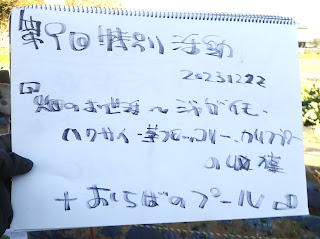 第9回特別活動
20231222
畑のお世話〜ジャガイモ、
ハクサイ・茎ブロッコリー、カリフラワー
の収穫
+おちばのプール